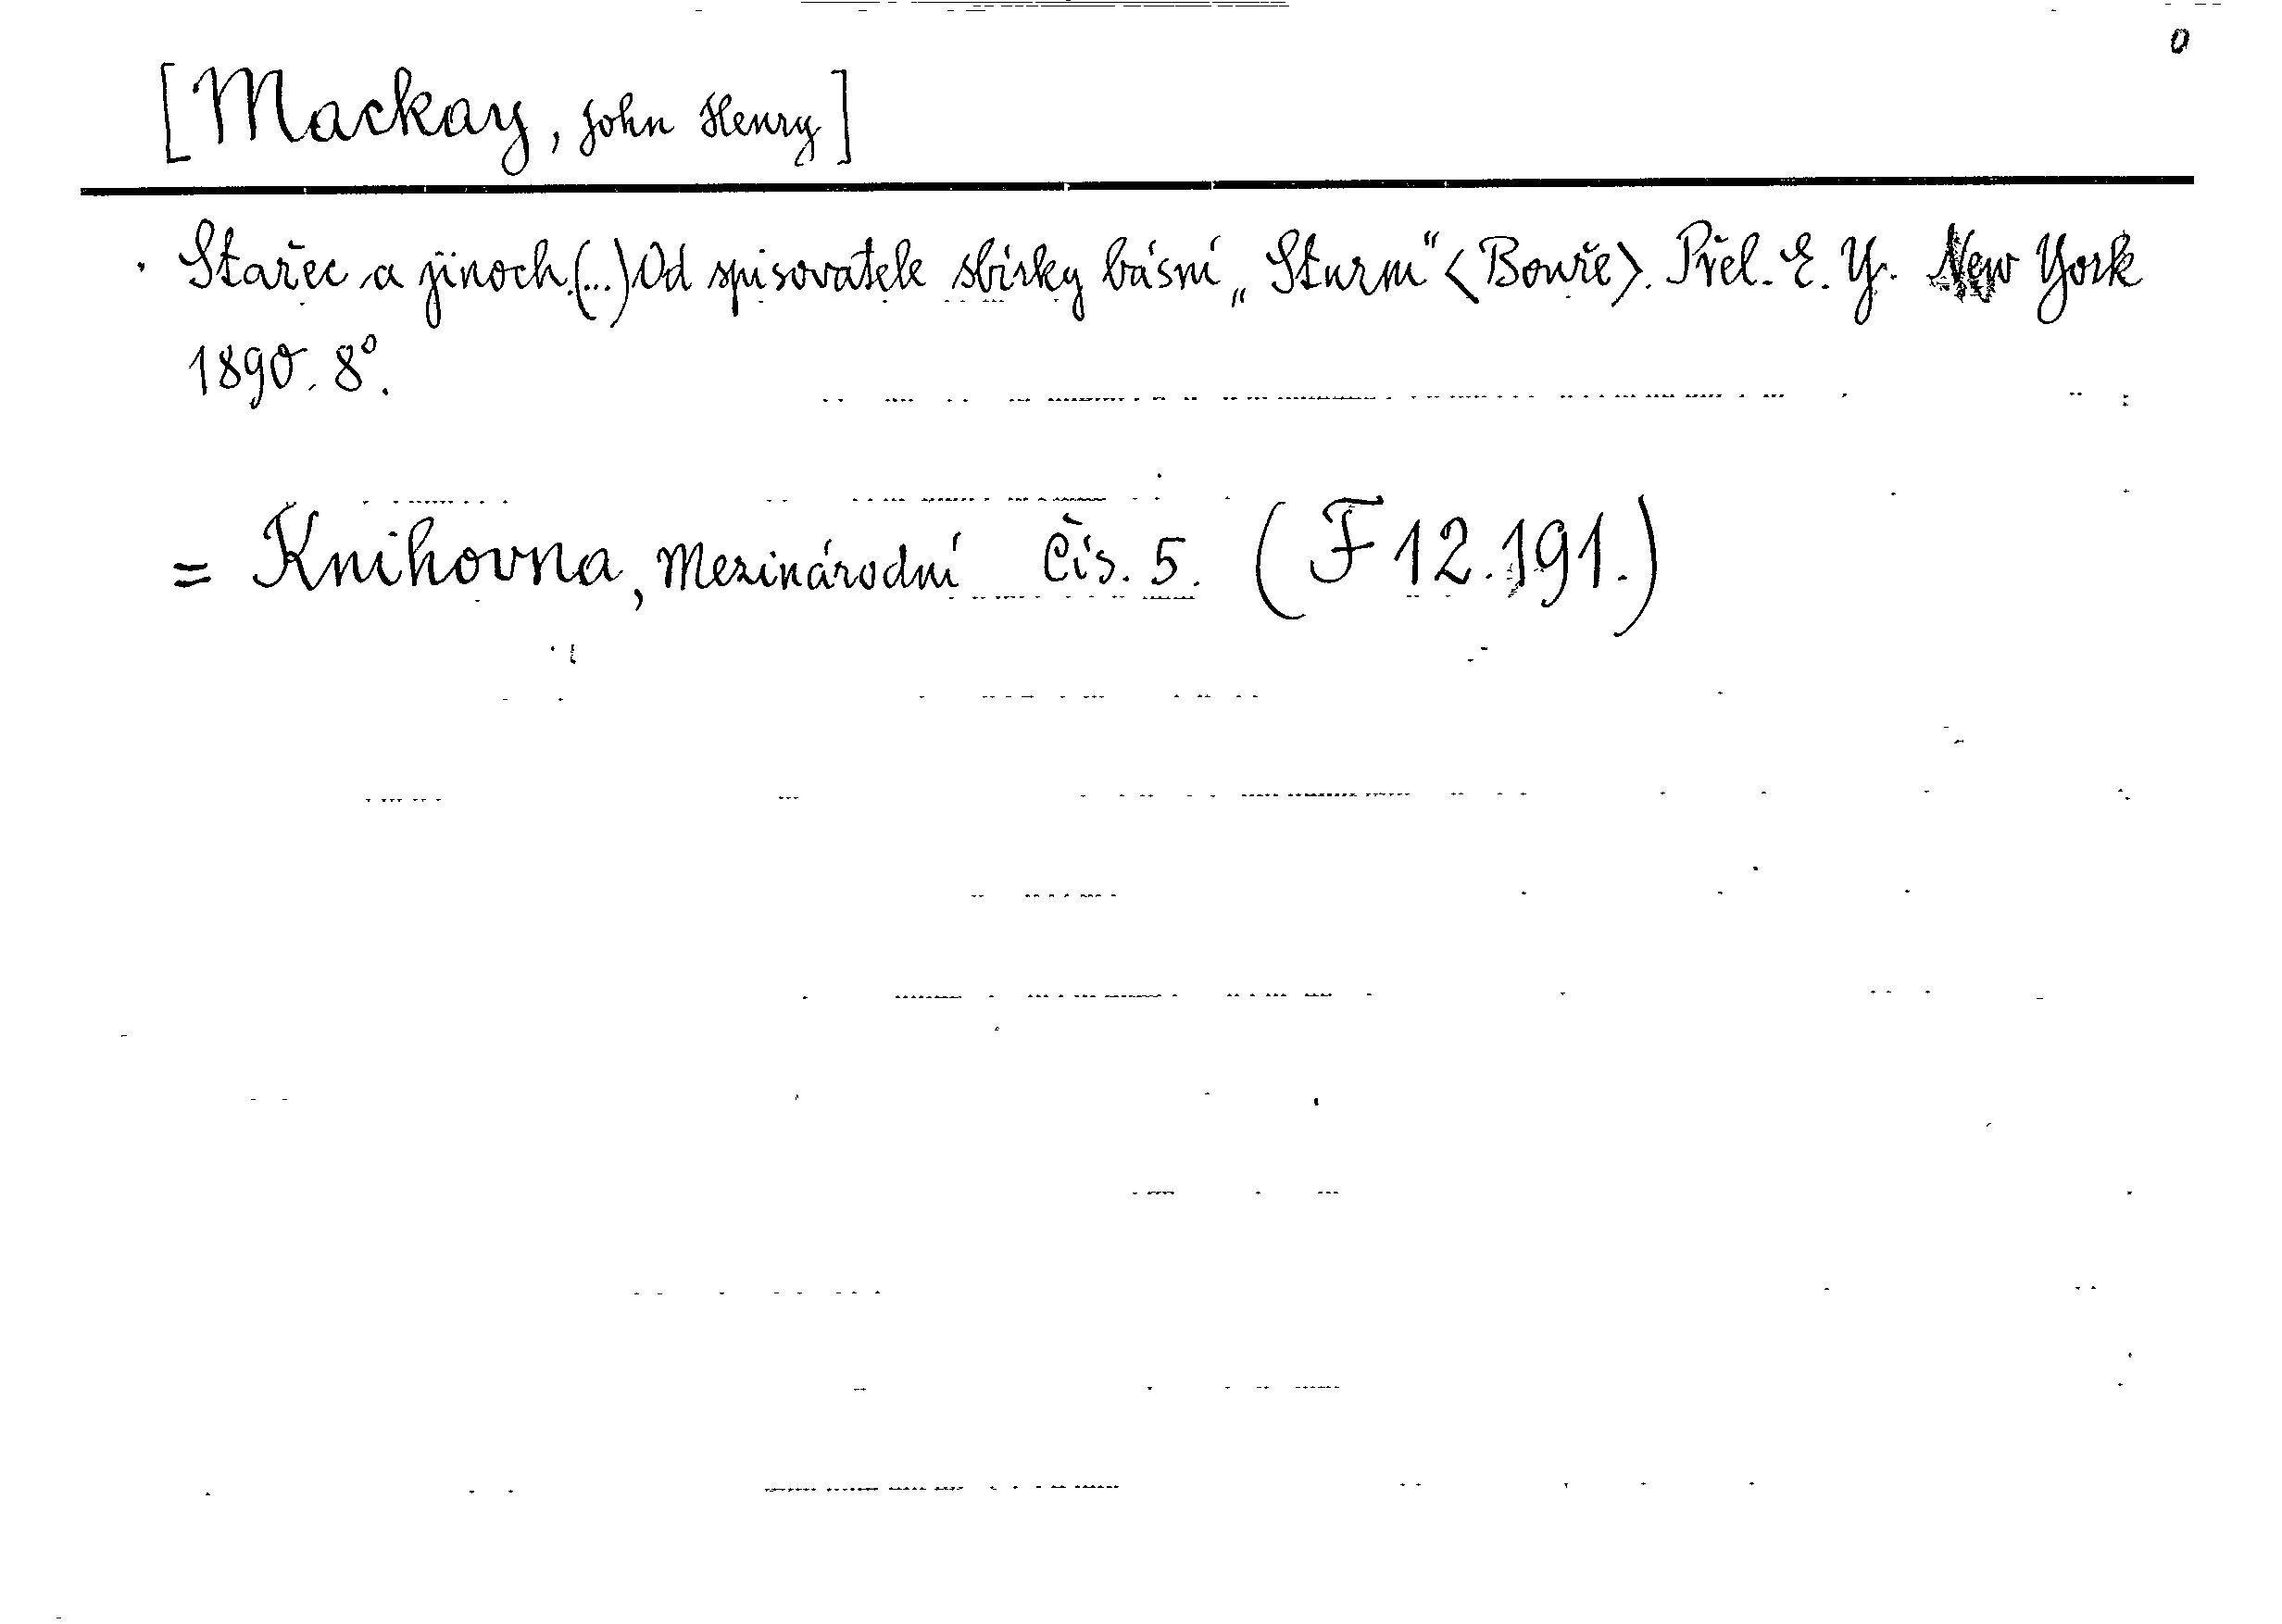 0
[Mackay, John Henry]
Stařec a jinoch. (...) Od spisovatele sbírky básní „Sturm“ <Bouře>. Přel. E. Y. New York
1890. 8°.
= Knihovna, Mezinárodní Čís. 5. (F 12.191.)